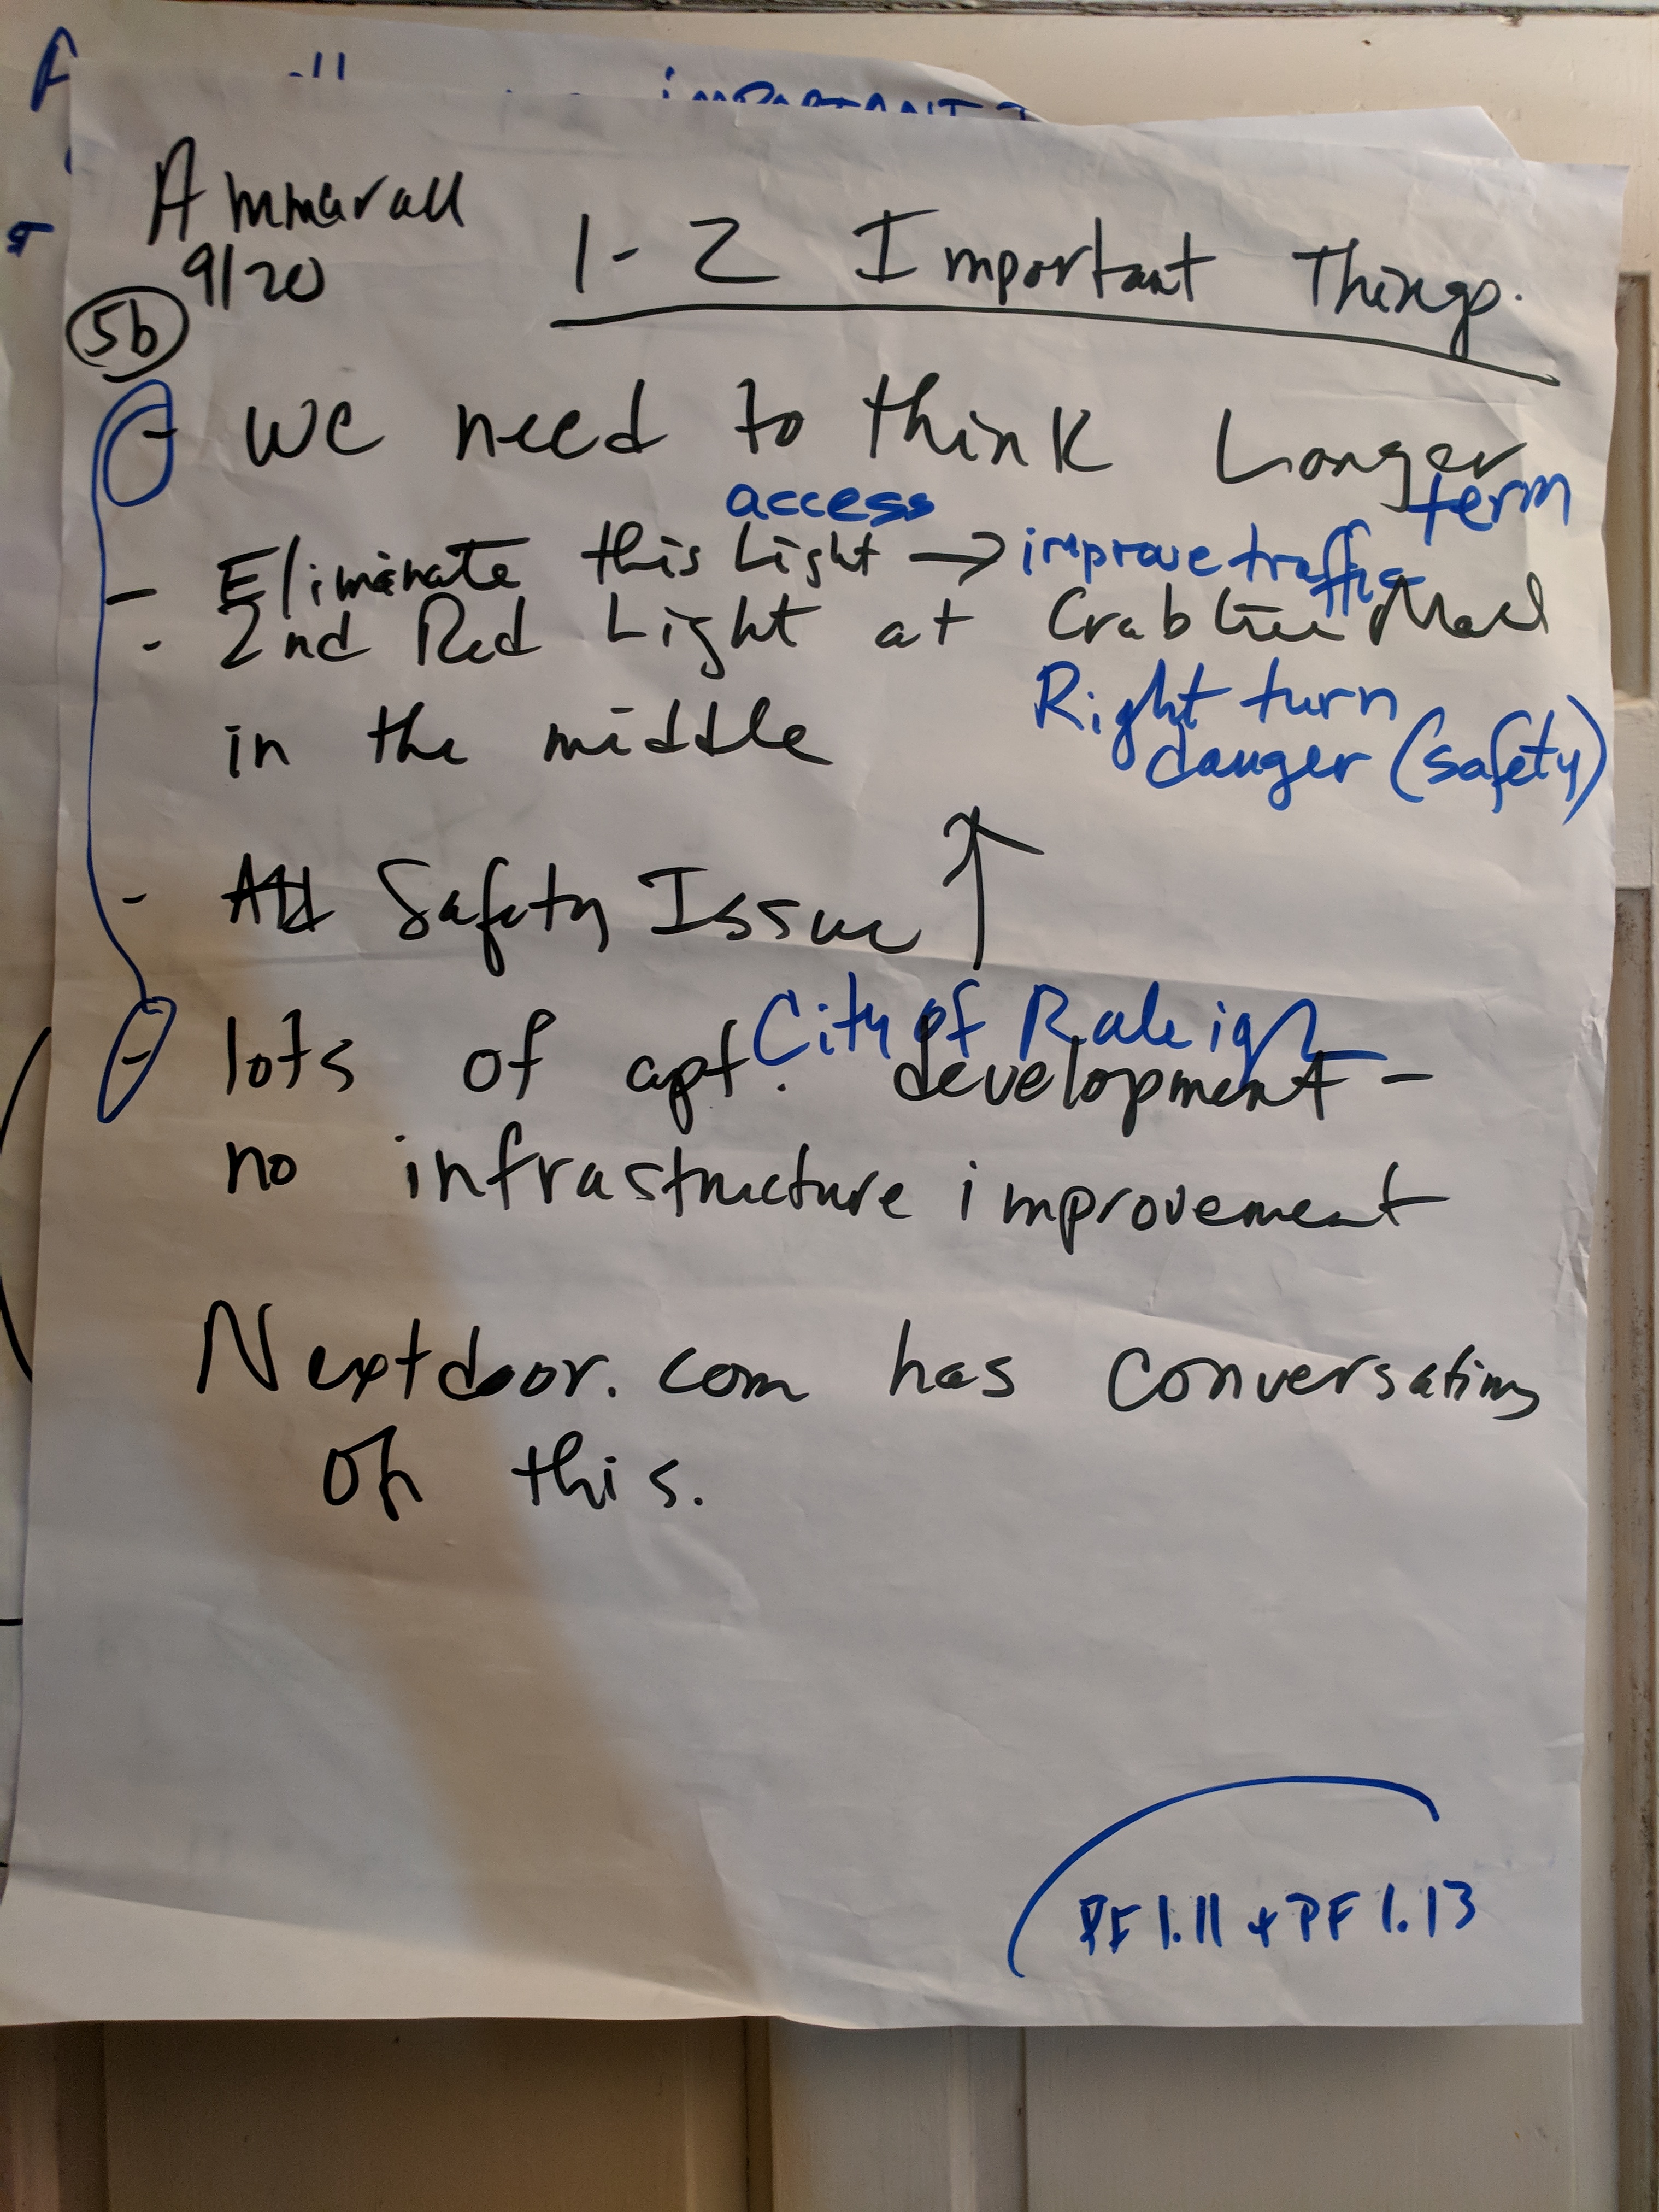 IMPORTANT
Ammarall
9/20
1-2 Important Things.
5b
- we need to think Longer
term
access
- Eliminate this Light → improve traffic
- 2nd Red Light at Crabtree Mall
in the middle
Right turn
danger (safety)
- Safety Issue ↑
City of Raleigh
- lots of apt. development -
no infrastructure improvement
Nextdoor.com has conversations
on this.
PF 1.11 + PF 1.13